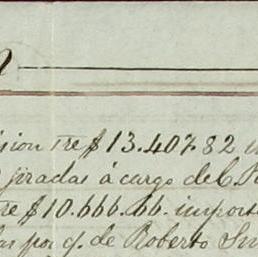 sion rre $13.407.82 
jiradas à cargo del
re $10.666.66. import
las por q. de Roberto